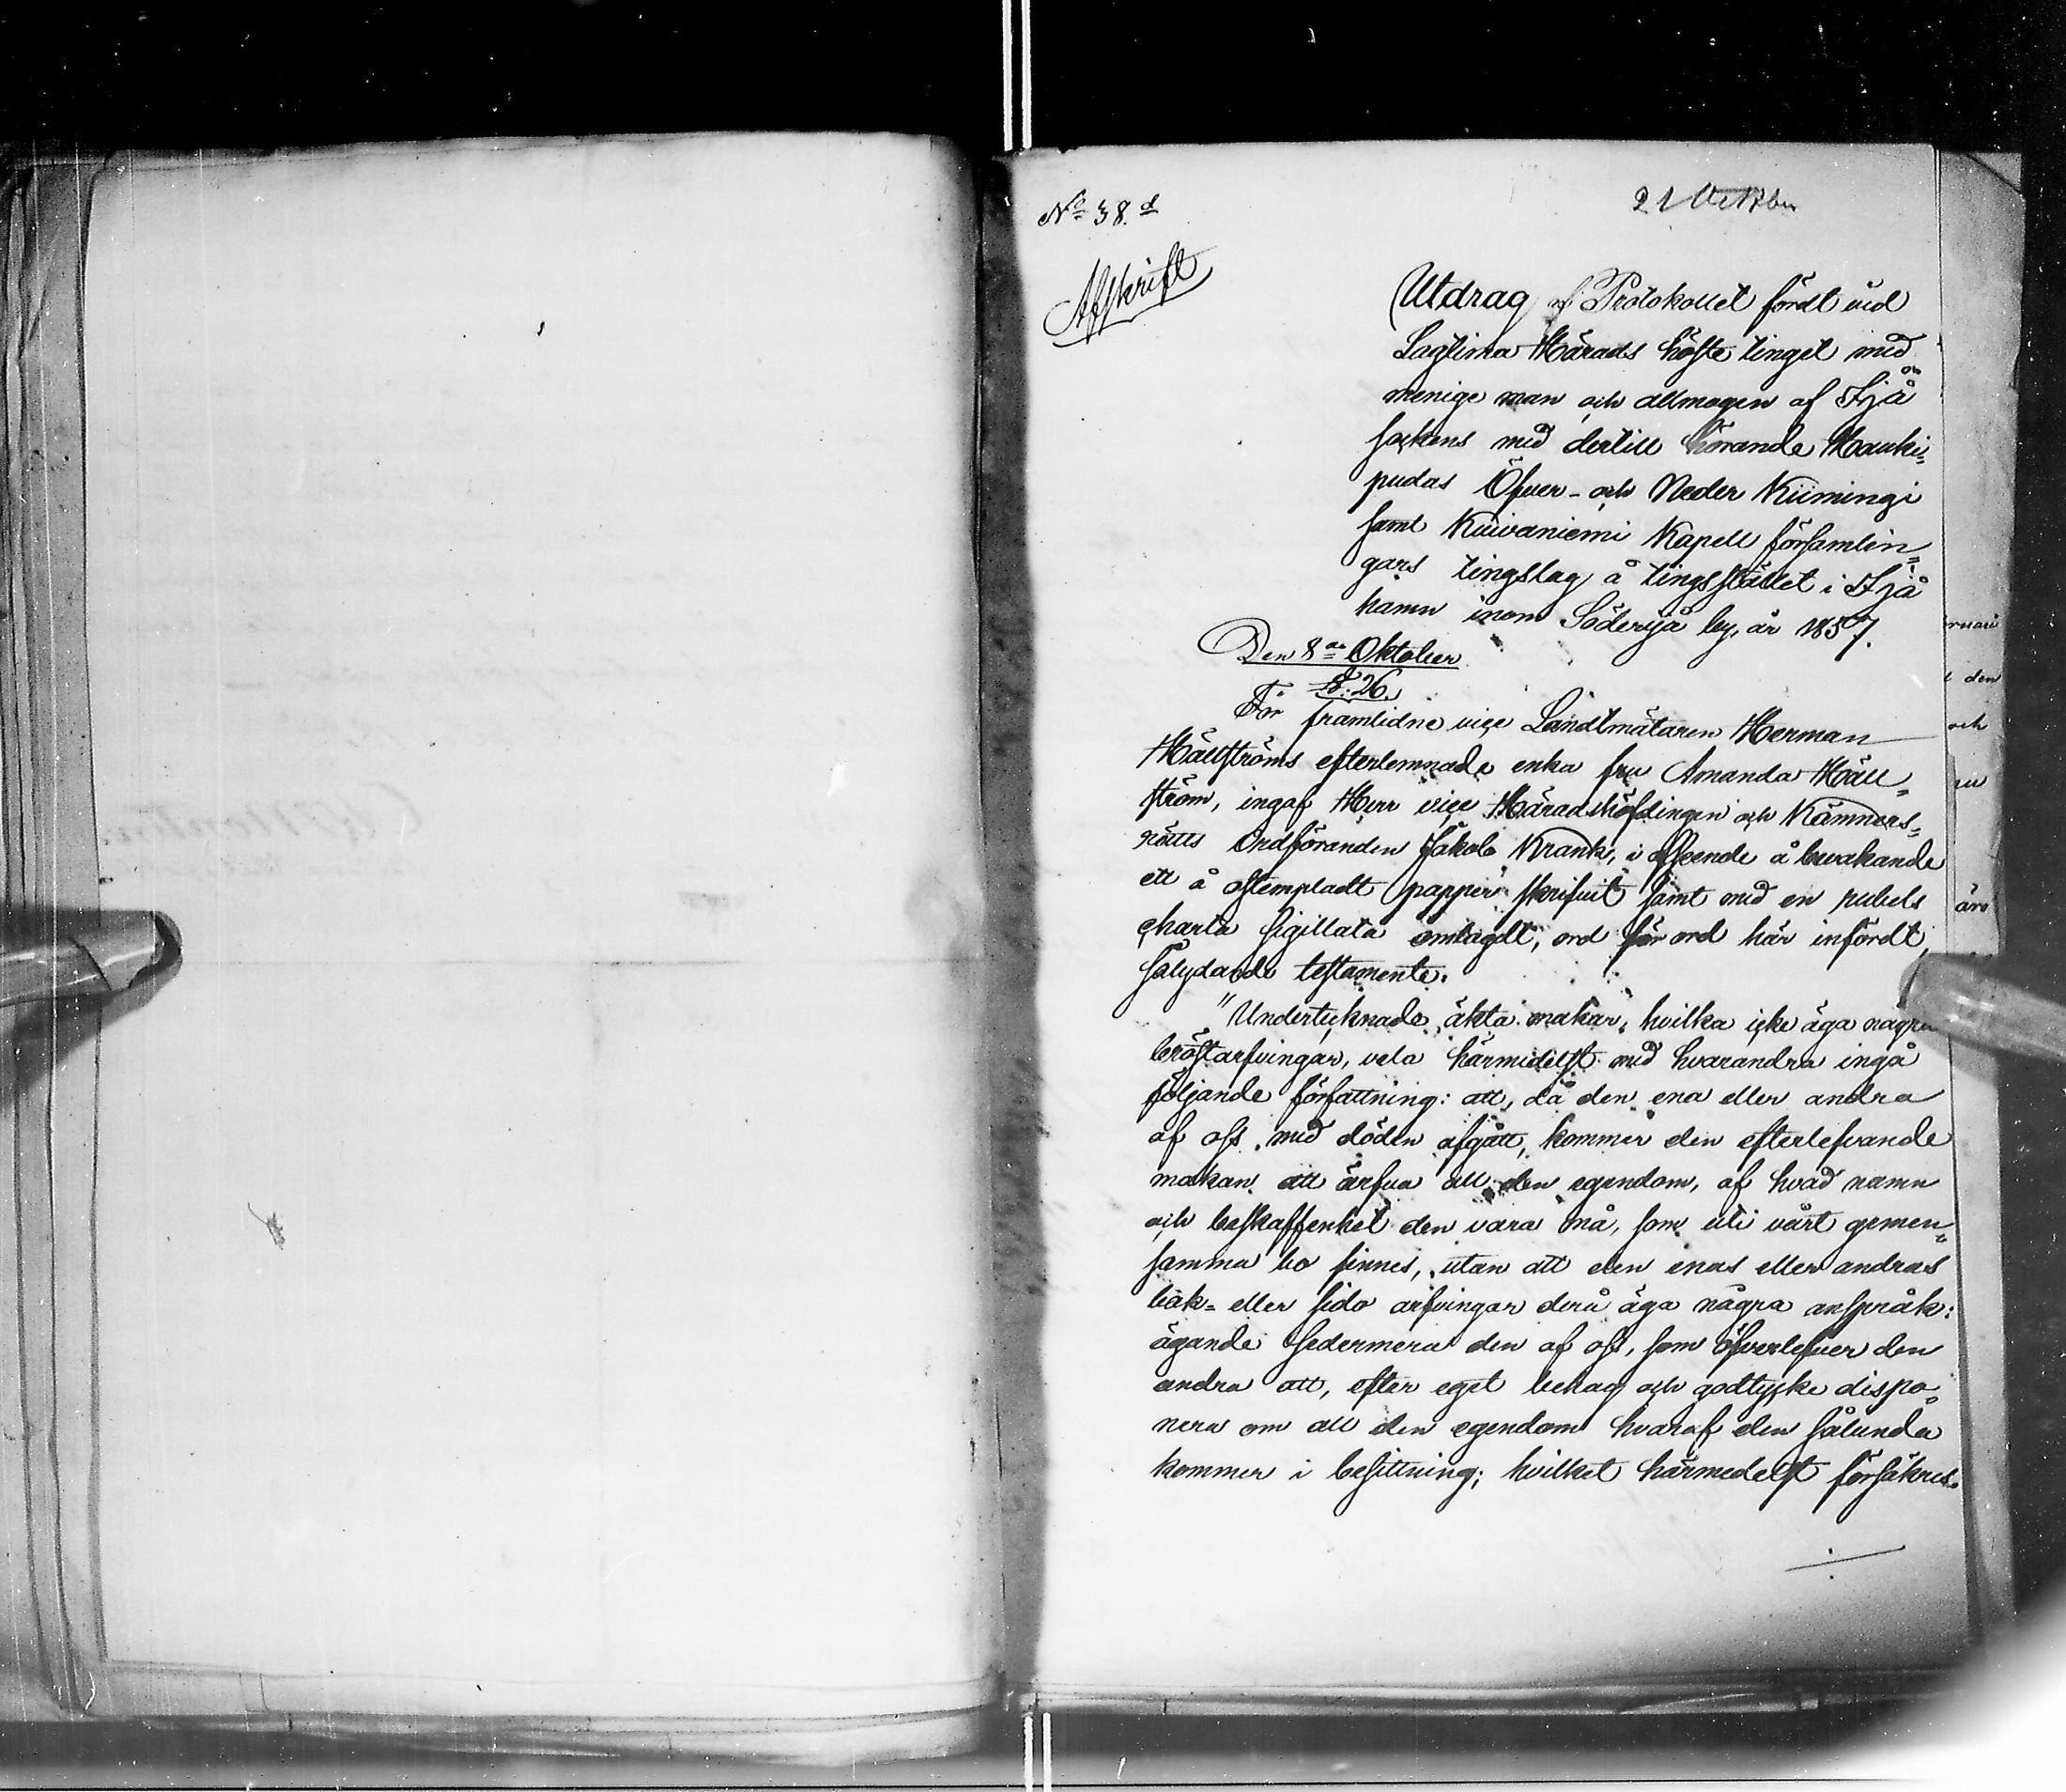 No 38.d
21 Oktober
Afskrift
Utdrag af Protokollet fördt vid
Lagtima Härads höste tinget med
menige man och allmogen af Ijå
sockens med dertill hörande Hauki=
pudas Öfver- och Neder Kiimingi
samt Kuivaniemi Kapell församlin=
gars tingslag å tingsstället i Ijå
hamn inom Söderijå by, år 1857.
Den 8de Oktober
§. 26.
För framlidne vice Landtmätaren Herman
Hällströms efterlemnade enka fru Amanda Häll=
ström, ingaf Herr vice Häradshöfdingen och Kämners=
rätts Ordföranden Jakob Krank, i afseende å bevakande
ett å ostempladt papper skrifvit samt med en rubels
charta sigillata omlagdt, ord för ord här infördt,
sålydande testamente.
"Undertecknade äkta makar, hvilka icke äga några
bröstarfvingar, vela härmedelst med hvarandra ingå
följande författning: att, då den ena eller andra
af oss med döden afgått, kommer den efterlefvande
makan att ärfva all den egendom, af hvad namn
och beskaffenhet den vara må, som uti vårt gemen=
samma bo finnes, utan att den enas eller andras
bak= eller sido arfvingar derå äga några anspråk:
ägande sedermera den af oss, som öfverlefver den
andra att, efter eget behag och godtycke dispo=
nera om all den egendom hvaraf den sålunda
kommer i besittning; hvilket härmedelst försäkras.
den
och
äro